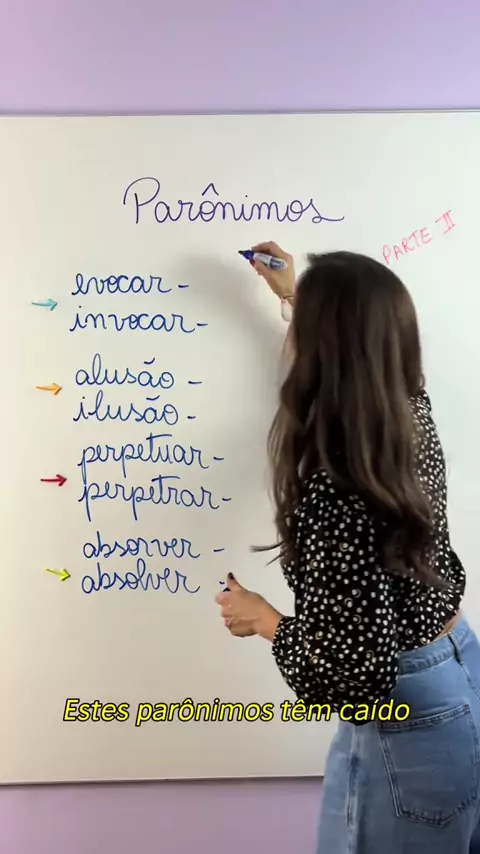 Parônimos
PARTE II
evocar -
invocar -
alusão -
ilusão -
perpetuar -
perpetrar -
absorver -
absolver -
Estes parônimos têm caído